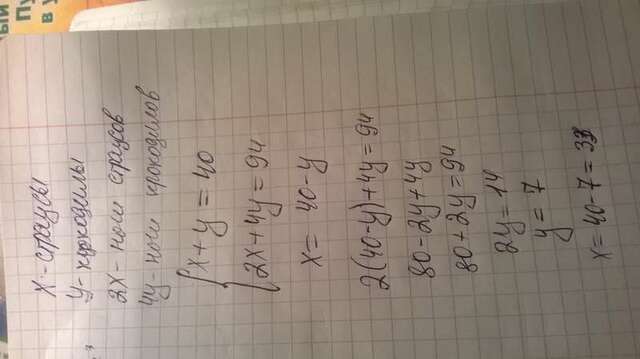 x - страусы
y - крокодилы
2x - ноги страусов
4y - ноги крокодилов
{x + y = 40
{2x + 4y = 94
x = 40 - y
2(40 - y) + 4y = 94
80 - 2y + 4y
80 + 2y = 94
2y = 14
y = 7
x = 40 - 7 = 33